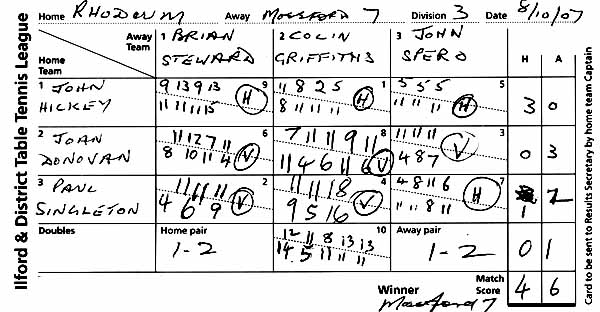 Home RHODEUM Away MOSSFORD 7 Division 3 Date 8/10/07
Ilford & District Table Tennis League
Away Team 1 BRIAN STEWARD 2 COLIN GRIFFITHS 3 JOHN SPERO H A
Home Team
1 JOHN HICKEY
9 13 9 13 9
11 11 11 15 H
11 8 2 5 1
8 11 11 11 H
5 5 5 5
11 11 11 H
3 0
2 JOAN DONOVAN
11 12 7 11 6
8 10 11 4 V
7 11 11 9 11 8
11 4 6 11 6 V
11 11 11 3
4 8 7 V
0 3
3 PAUL SINGLETON
11 11 11 2
4 6 9 V
11 11 18 4
9 5 16 V
4 8 11 6 7
11 11 8 11 H
1 2
Doubles Home pair 10 Away pair
1-2
12 11 8 13 13
14 5 11 11 11
1-2
0 1
Winner Match Score 4 6
Mossford 7
Card to be sent to Results Secretary by home team Captain